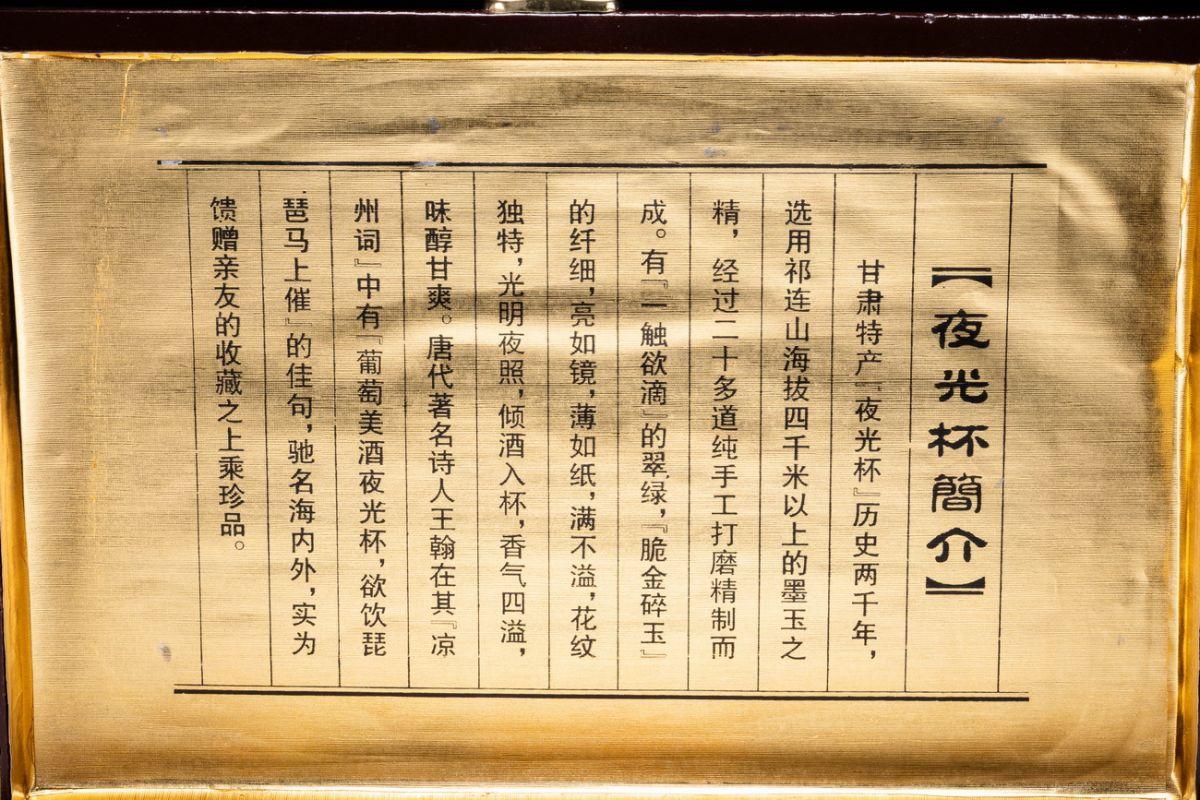 【夜光杯簡介】
甘肃特产『夜光杯』历史两千年，
选用祁连山海拔四千米以上的墨玉之
精，经过二十多道纯手工打磨精制而
成。有『一触欲滴』的翠绿，『脆金碎玉』
的纤细，亮如镜，薄如纸，满不溢，花纹
独特，光明夜照，倾酒入杯，香气四溢，
味醇甘爽。唐代著名诗人王翰在其『凉
州词』中有『葡萄美酒夜光杯，欲饮琵
琶马上催』的佳句，驰名海内外，实为
馈赠亲友的收藏之上乘珍品。